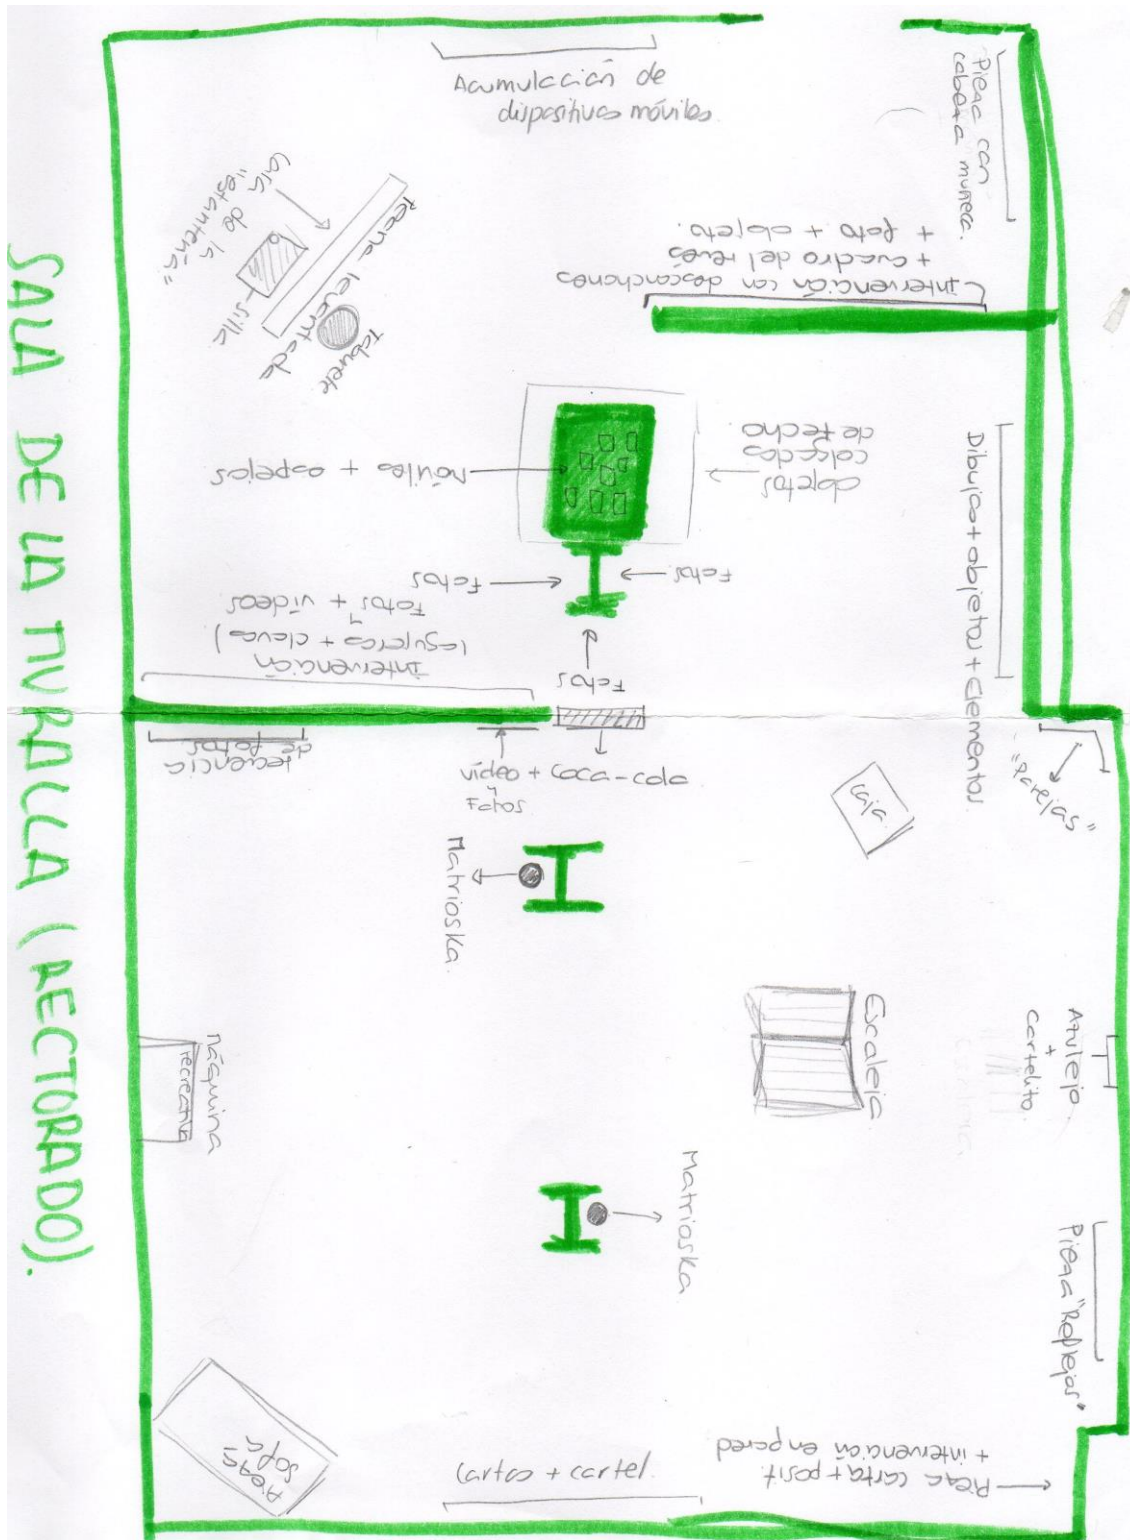 SALA DE LA MURALLA (RECTORADO).
Acumulación de
dispositivos móviles.
Pieza con
cabeza muñeca.
intervención con desconchones
+ cuadro del revés
+ foto + objeto.
Caja de la
"estantería"
silla
Peana levantada
Taburete
móviles + espejos
objetos
colgados
de techo.
Dibujos + objetos + elementos.
Fotos
Fotos
Fotos
intervención
(agujeros + clavos)
y
Fotos + vídeos
secuencia
de fotos
vídeo + coca-cola
y
Fotos
"Parejas"
caja
Matrioska.
Escaleja
Azulejo
+
cartelito.
máquina
recreativa
Matrioska
Pieza "Reflejos"
Pieza
sofá
Cartas + cartel.
Pieza carta + posit
+ intervención en pared